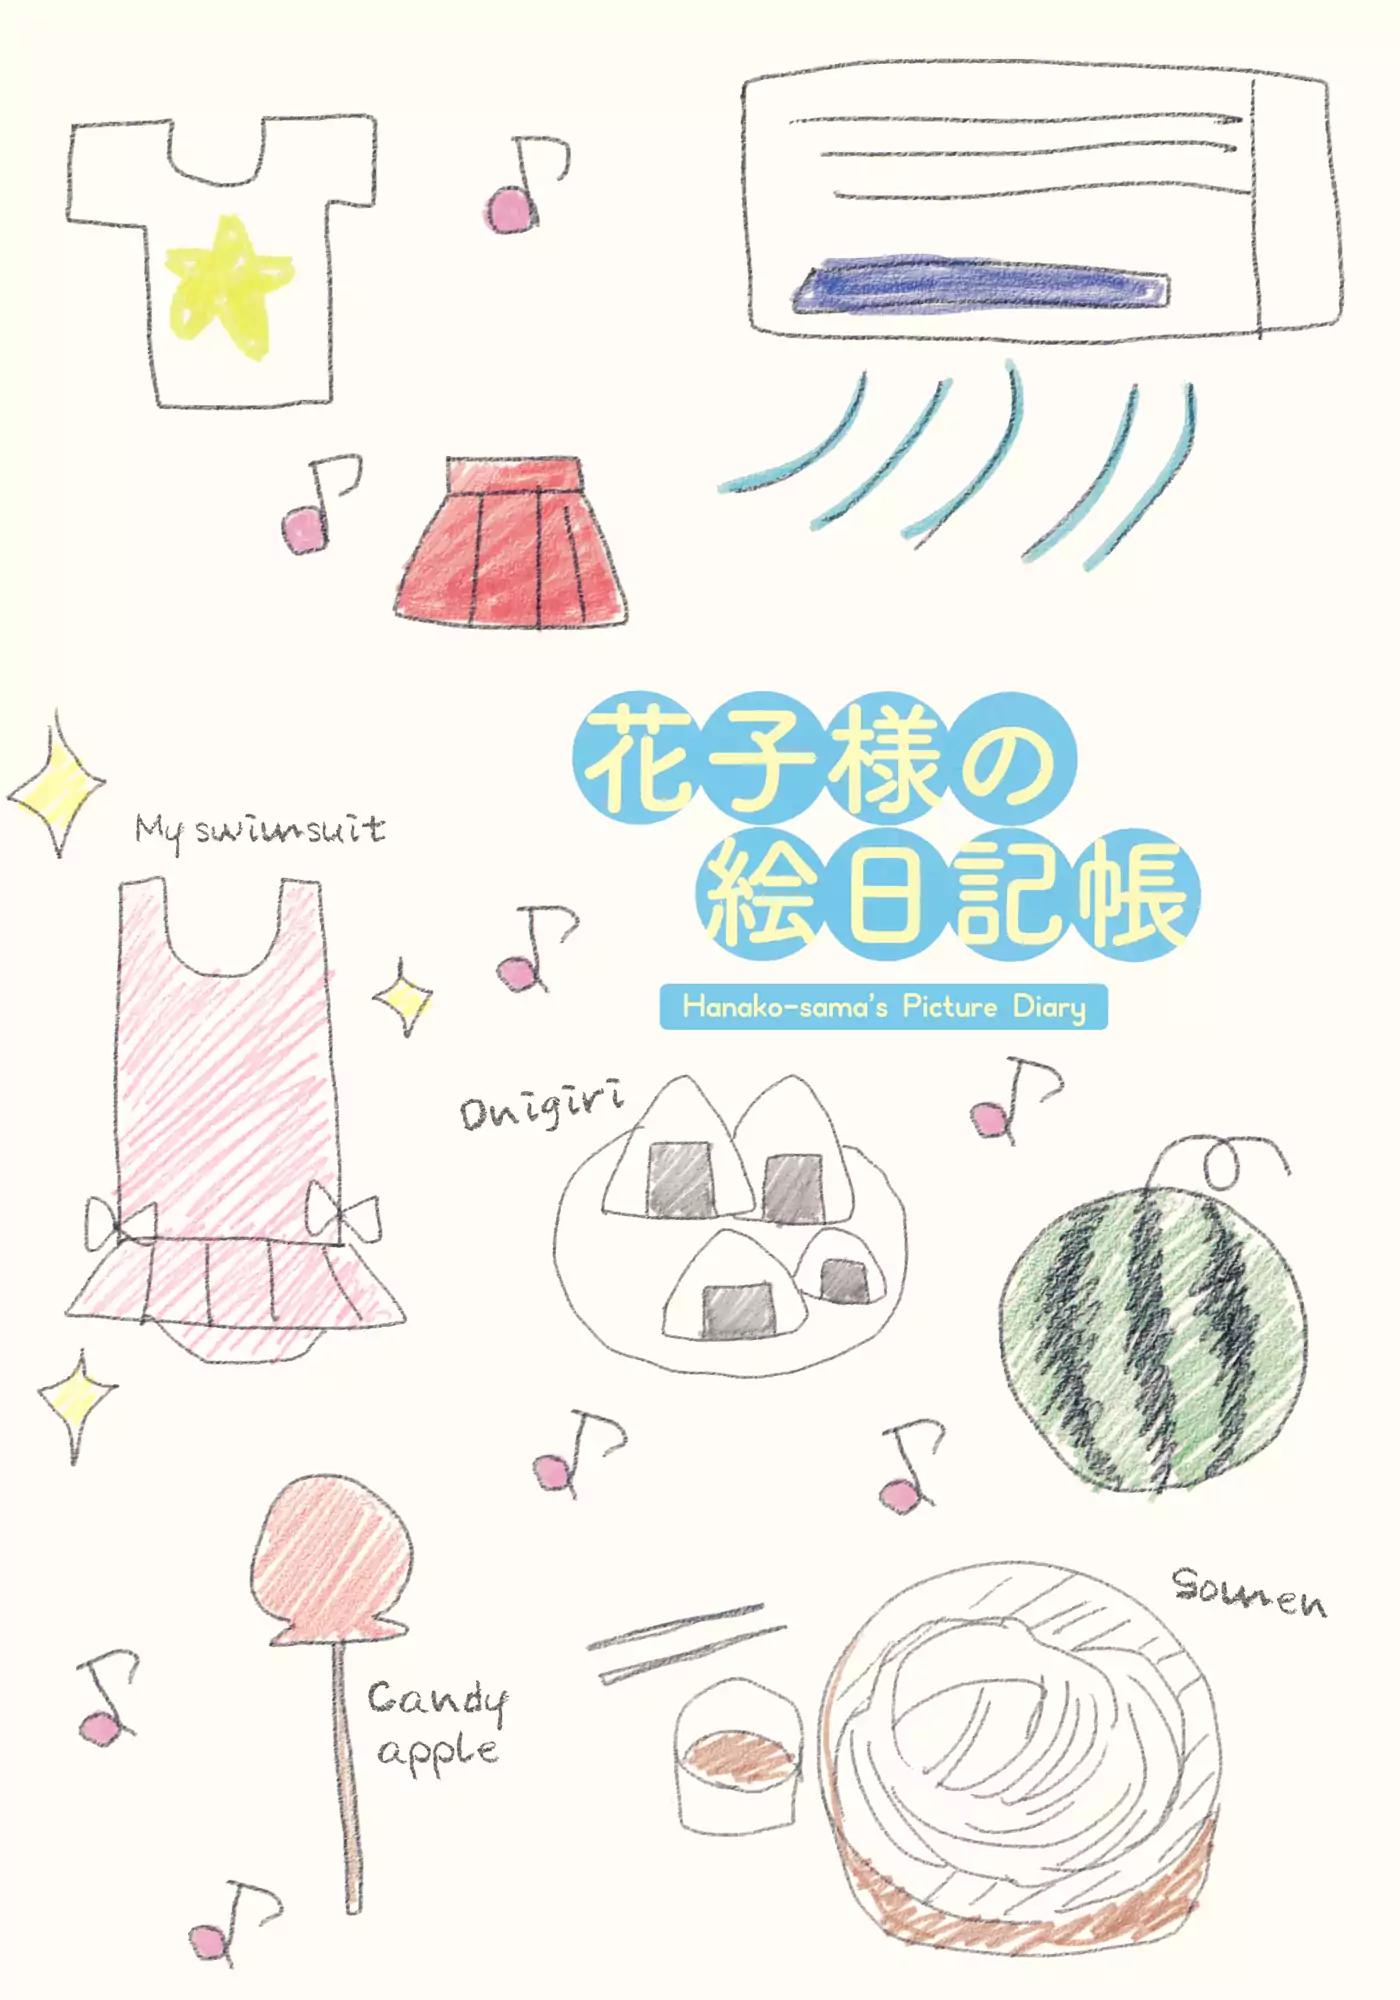 花子様の
絵日記帳
Hanako-sama's Picture Diary
My swimsuit
Onigiri
Somen
Candy
apple